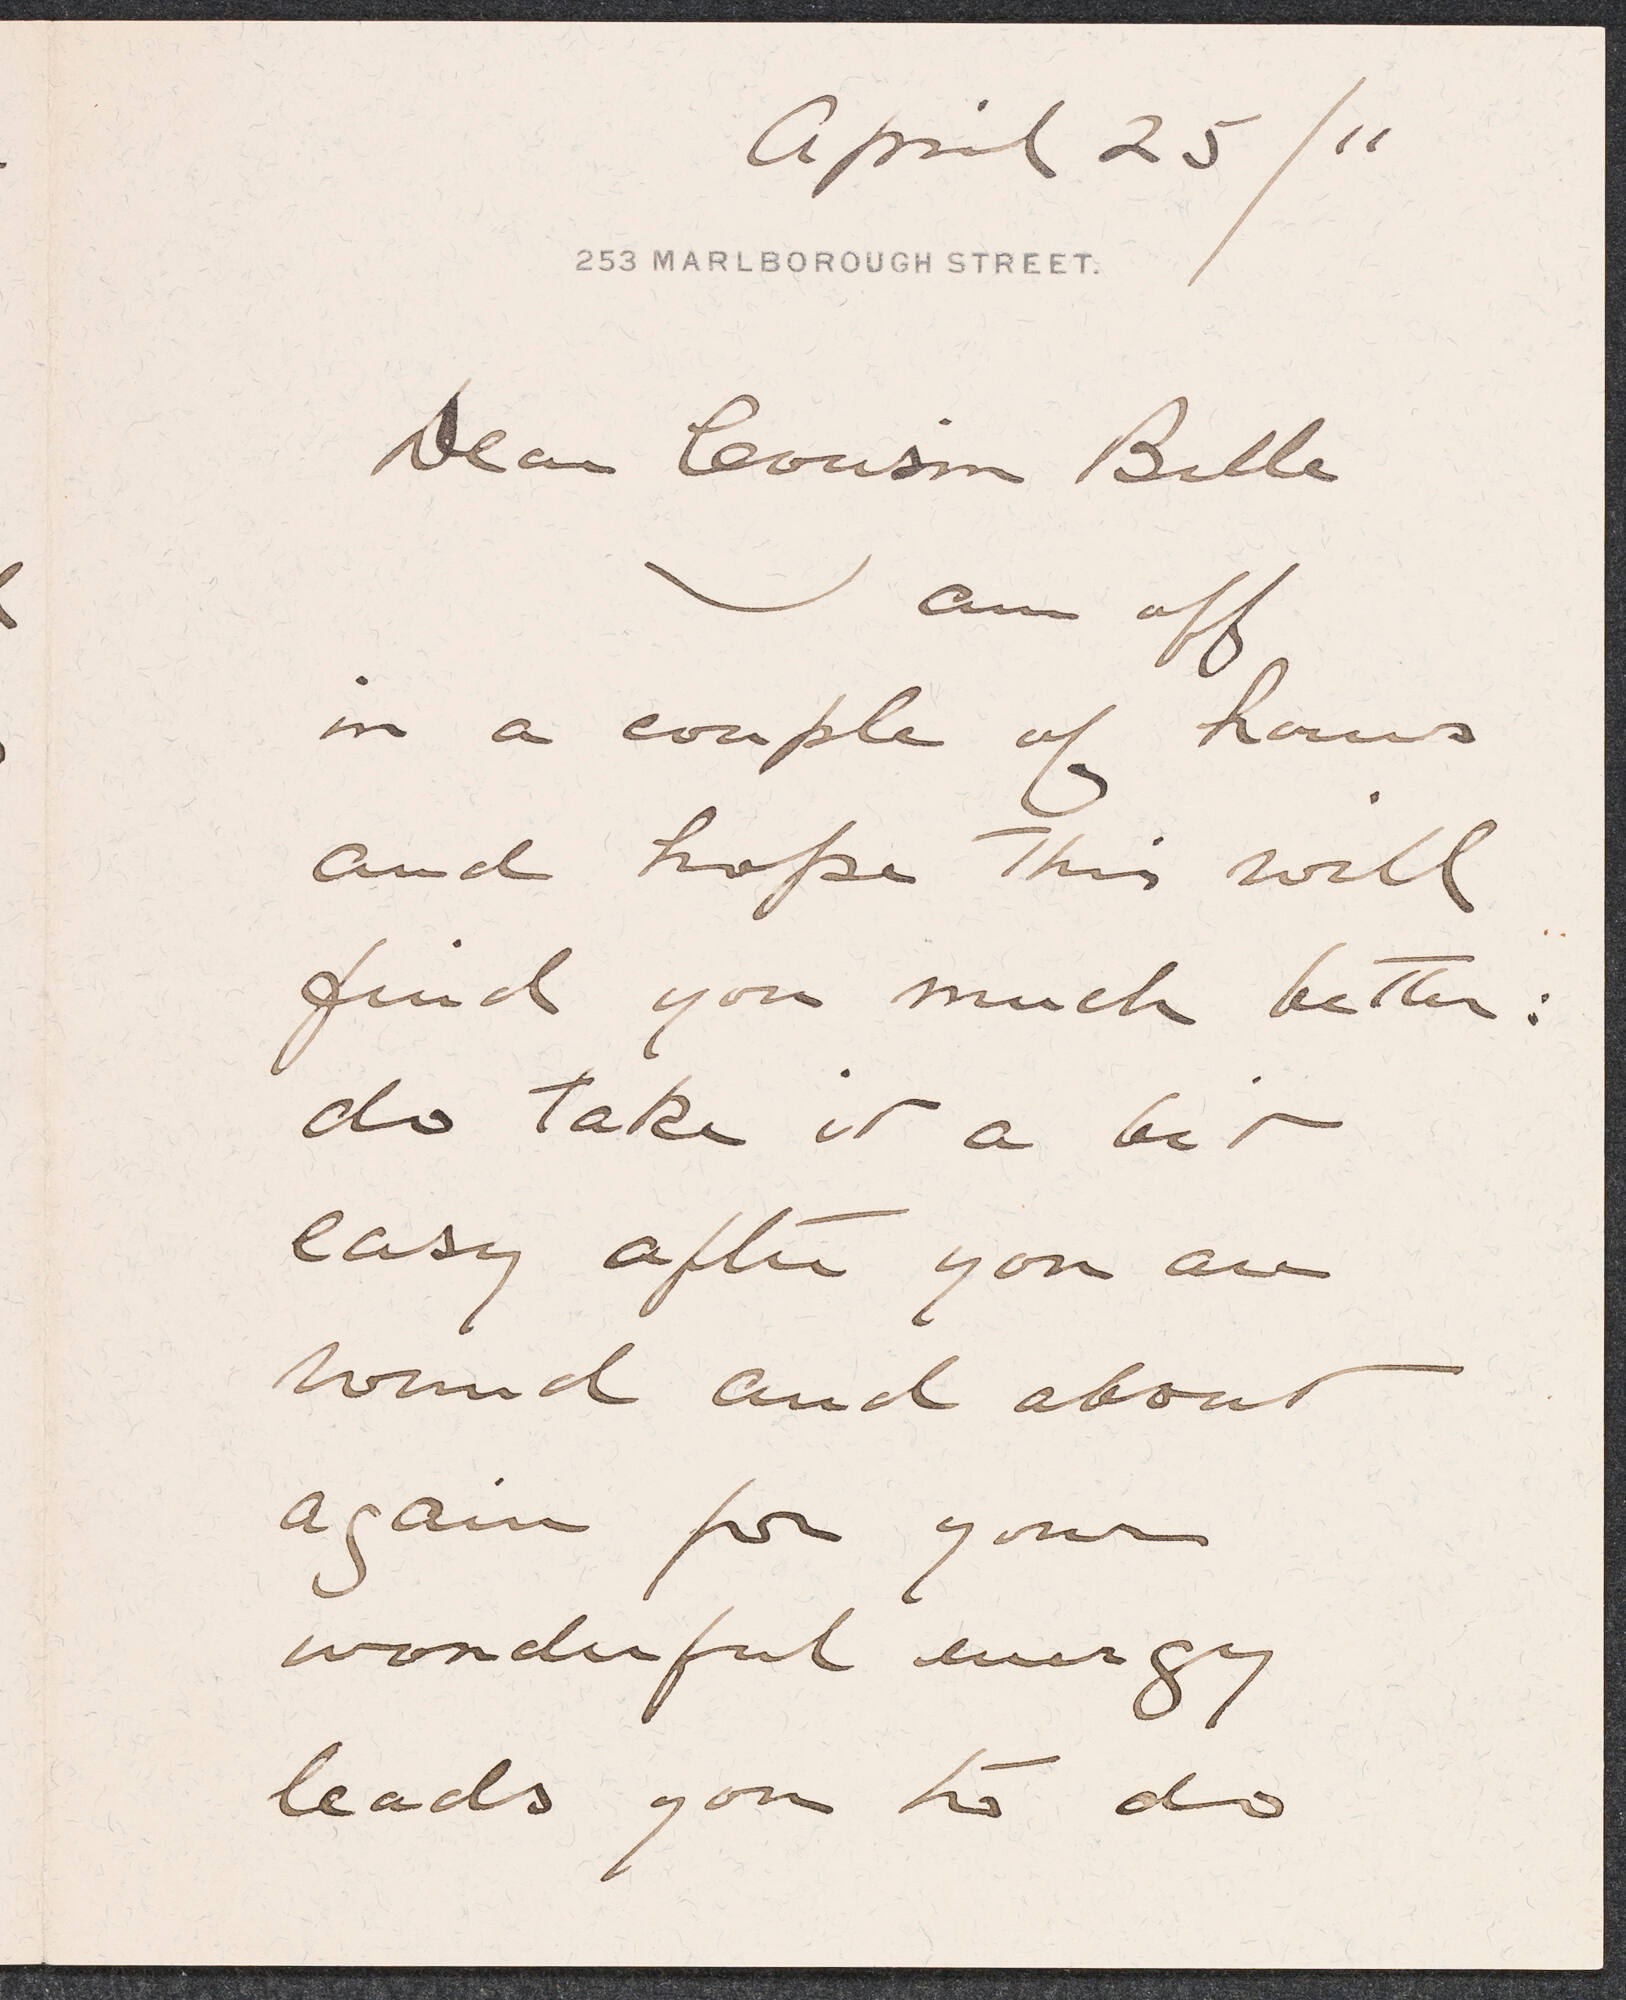 April 25/11
253 MARLBOROUGH STREET.
Dear Cousin Belle
I am off
in a couple of hours
and hope this will
find you much better:
do take it a bit
easy after you are
round and about
again for your
wonderful energy
leads you to do